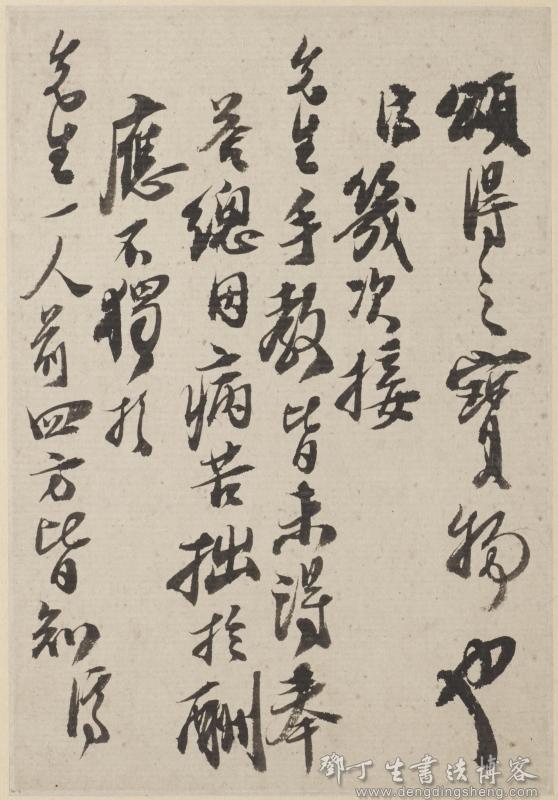 頌得之寶物也
濟幾次接
先生手教皆未得奉
答總因病苦拙於酬
應不獨於
先生一人前四方皆知濟
鄧丁生書法博客
www.dengdingsheng.com